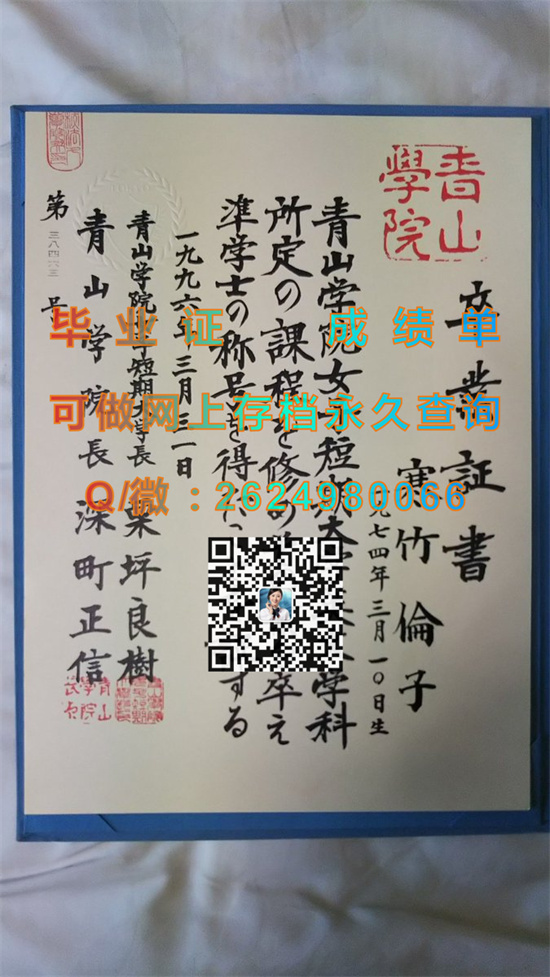 青山學院
卒業証書
寒竹倫子
九七四年三月一〇日生
青山学院女 短期大 学科
所定の課程を修め 卒え
準学士の称号を得 する
一九九六年三月三一日
青山学院 短期大学長 栗坪良樹
青山学院長 深町正信
第 三八四六三 号
毕业证 成绩单
可做网上存档永久查询
Q/微:2624980066